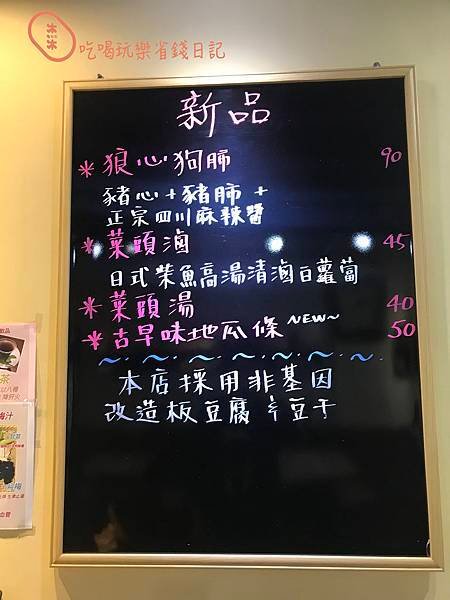 吃喝玩樂省錢日記
新品
*狼心狗肺 90
豬心+豬肺+
正宗四川麻辣醬
*菜頭滷 45
日式柴魚高湯清滷白蘿蔔
*菜頭湯 40
*古早味地瓜條 ~NEW~ 50
本店採用非基因
改造板豆腐&豆干
茶
梅汁